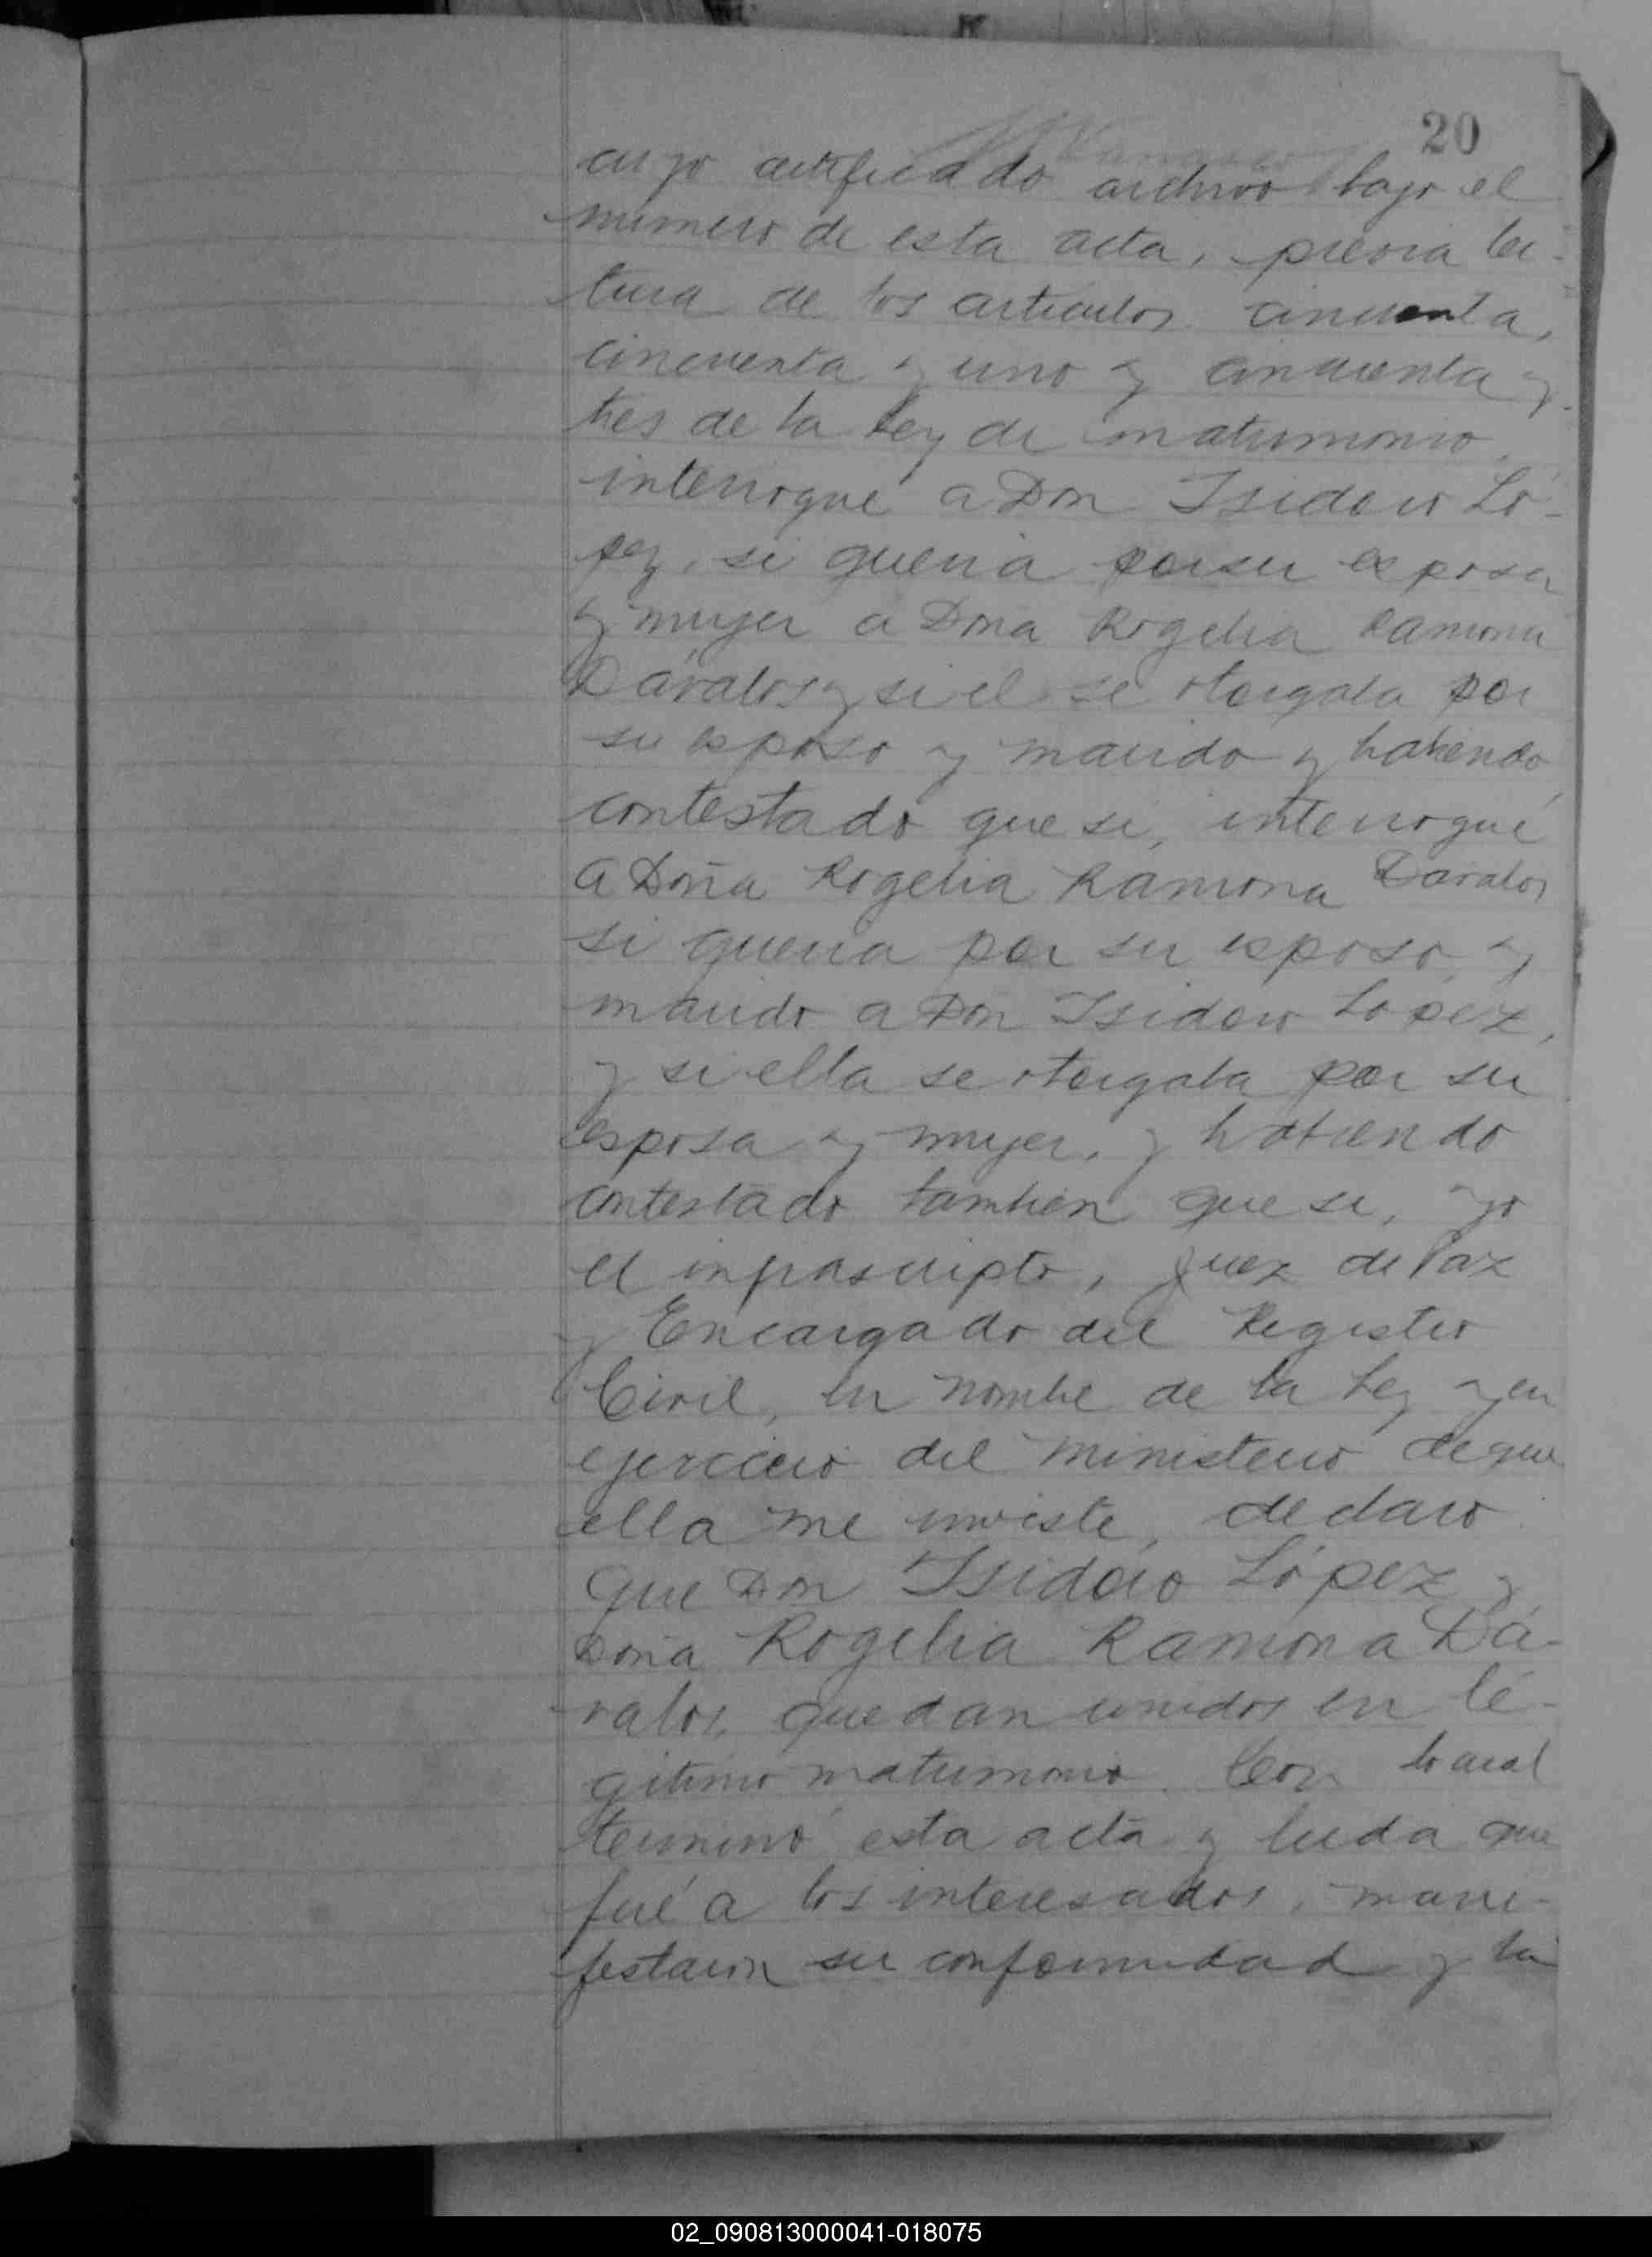 20
cuyo certificado archivo bajo el
número de esta acta, previa lec-
tura de los artículos cincuenta,
cincuenta y uno y cincuenta y
tres de la Ley de matrimonio,
interrogué a Don Isidoro Ló-
pez, si quería por su esposa
y mujer a Doña Rogelia Ramona
Dávalos y si el se otorgaba por
su esposo y marido y habiendo
contestado que si, interrogué
a Doña Rogelia Ramona Dávalos
si quería por su esposo y
marido a Don Isidoro López,
y si ella se otorgaba por su
esposa y mujer, y habiendo
contestado tambien que si, yo
el infrascripto, Juez de Paz
y Encargado del Registro
Civil, en nombre de la Ley y en
ejercicio del ministerio de que
ella me inviste, declaro
que Don Isidoro López y
Doña Rogelia Ramona Dá-
valos, quedan unidos en le-
gitimo matrimonio. Con lo cual
terminó esta acta y leida que
fué a los interesados, mani-
festaron su conformidad y la
02_090813000041-018075